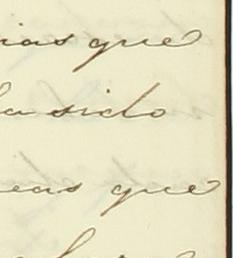 ias que
la sido
eas que